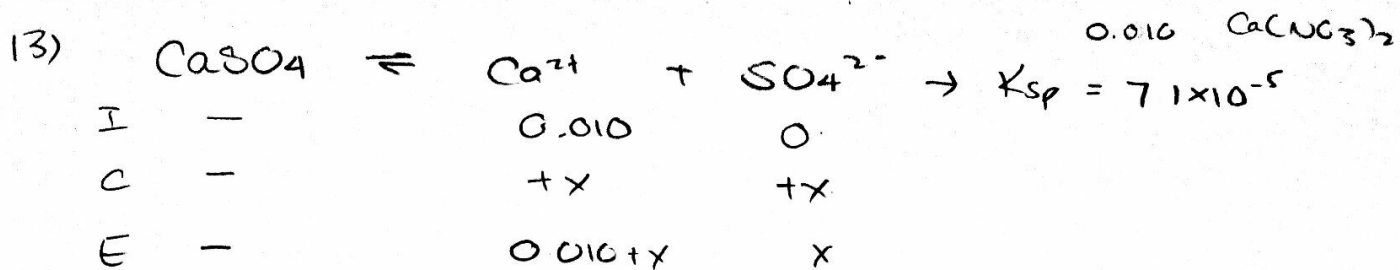 0.010 Ca(NO3)2
13) CaSO4 ⇌ Ca2+ + SO4 2- → Ksp = 7 1×10-5
I — 0.010 0
C — +x +x
E — 0 010+x x